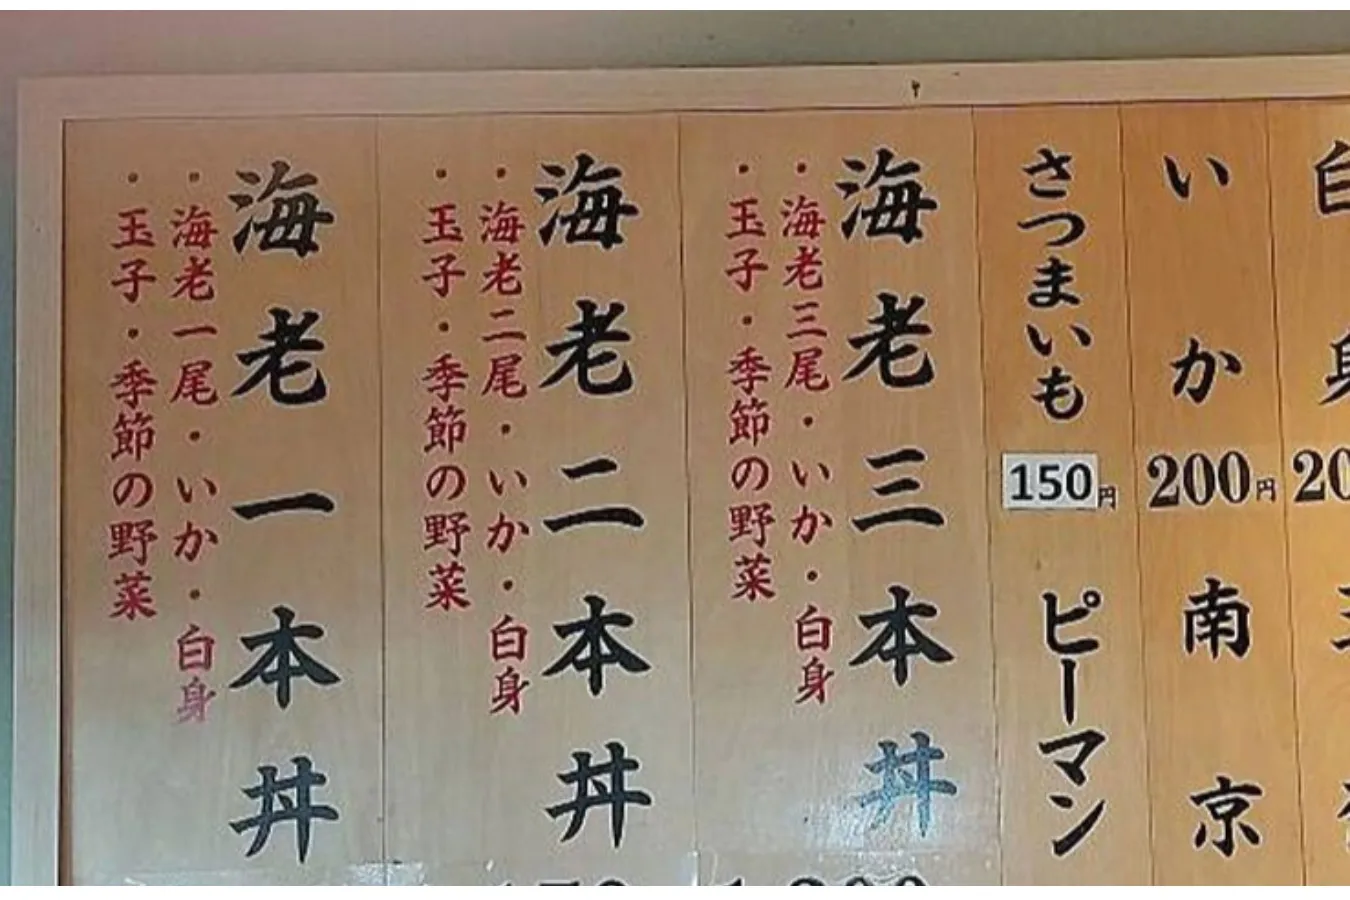 いか
200円
南京
さつまいも
150円
ピーマン
海老三本丼
・海老三尾・いか・白身
・玉子・季節の野菜
海老二本丼
・海老二尾・いか・白身
・玉子・季節の野菜
海老一本丼
・海老一尾・いか・白身
・玉子・季節の野菜